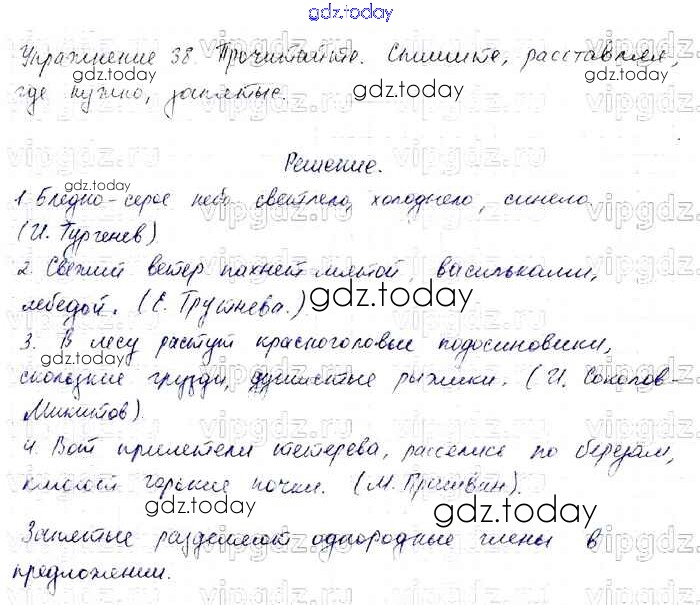 gdz.today
Упражнение 38. Прочитайте. Спишите, расставляя,
где нужно, запятые.
Решение.
1. Бледно-серое небо светлело, холоднело, синело.
(И. Тургенев)
2. Свежий ветер пахнет мятой, васильками,
лебедой. (Е. Трутнева.)
3. В лесу растут красноголовые подосиновики,
скользкие грузди, душистые рыжики. (И. Соколов-
Микитов)
4. Вот прилетели тетерева, расселись по березам,
клюют горькие почки. (М. Пришвин).
Запятые разделяют однородные члены в
предложении.